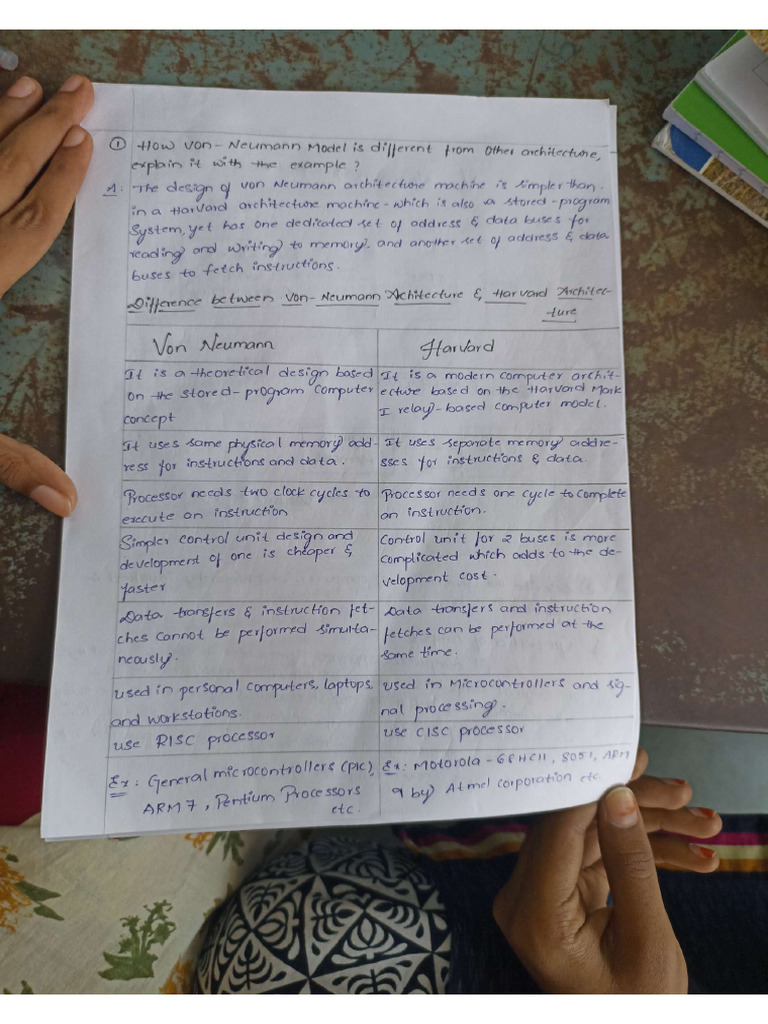 ① How Von-Neumann Model is different from other architecture,
explain it with the example ?
A: The design of von Neumann architecture machine is simpler than
in a Harvard architecture machine - which is also a stored-program
system, yet has one dedicated set of address & data buses for
reading and writing to memory, and another set of address & data
buses to fetch instructions.
Difference between Von-Neumann Achitecture & Harvard Architec-
ture
Von Neumann
It is a theoretical design based
on the stored-program computer
concept
Harvard
It is a modern computer archit-
ecture based on the Harvard Mark
I relay-based computer model.
It uses same physical memory add-
ress for instructions and data.
It uses separate memory addre-
sses for instructions & data.
Processor needs two clock cycles to
execute an instruction
Processor needs one cycle to complete
an instruction.
Simpler control unit design and
development of one is cheaper &
faster
Control unit for 2 buses is more
complicated which adds to the de-
velopment cost.
Data transfers & instruction fet-
ches cannot be performed simulta-
neously.
Data transfers and instruction
fetches can be performed at the
same time.
used in personal computers, laptops,
and workstations.
used in Microcontrollers and sig-
nal processing.
use RISC processor
use CISC processor
Ex: General microcontrollers (PIC),
ARM7, Pentium Processors
etc.
Ex: Motorola - 68HC11, 8051, ARM
9 by) Atmel corporation etc.